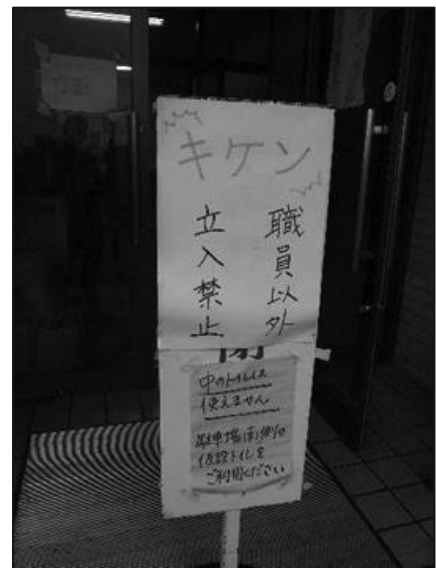 キケン
職員以外
立入禁止
中のトイレは
使えません
駐車場南側の
仮設トイレを
ご利用ください